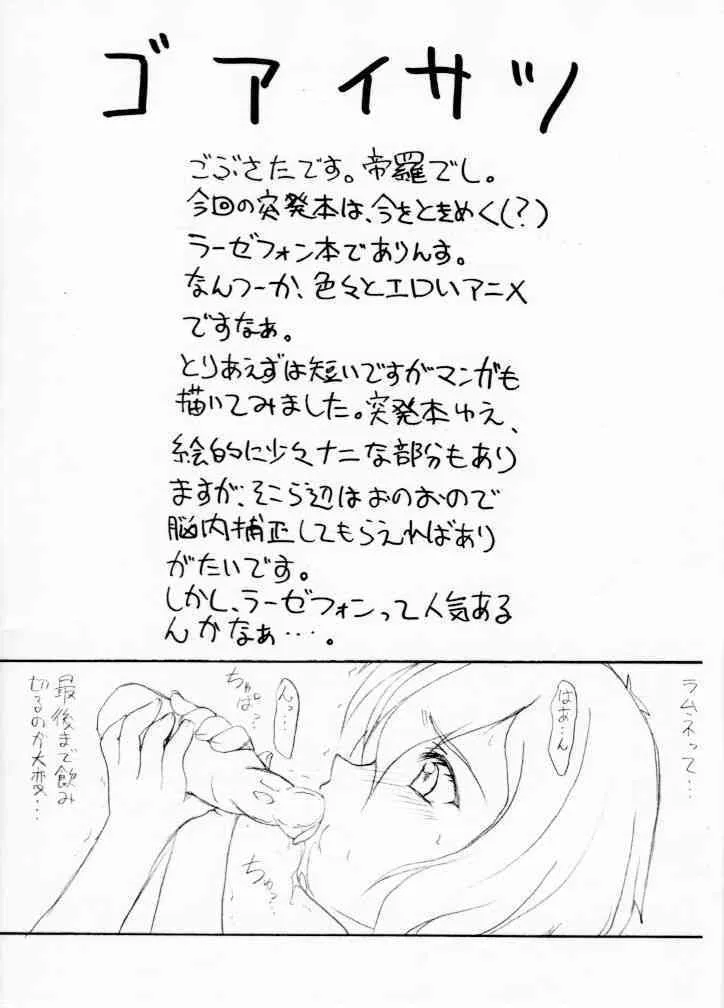 ゴアイサツ
ごぶさたです。帝羅でし。
今回の突発本は、今をときめく(?)
ラーゼフォン本でありんす。
なんつーか、色々とエロいアニメ
ですなぁ。
とりあえずは短いですがマンガも
描いてみました。突発本ゆえ、
絵的に少々ナニな部分もあり
ますが、そこら辺はおのおので
脳内補正してもらえればあり
がたいです。
しかし、ラーゼフォンって人気ある
んかなぁ…。
ラムネって…
はぁ…ん
んっ…
ちゅぱ?
ちゅっ?
最後まで飲み
切るのが大変…